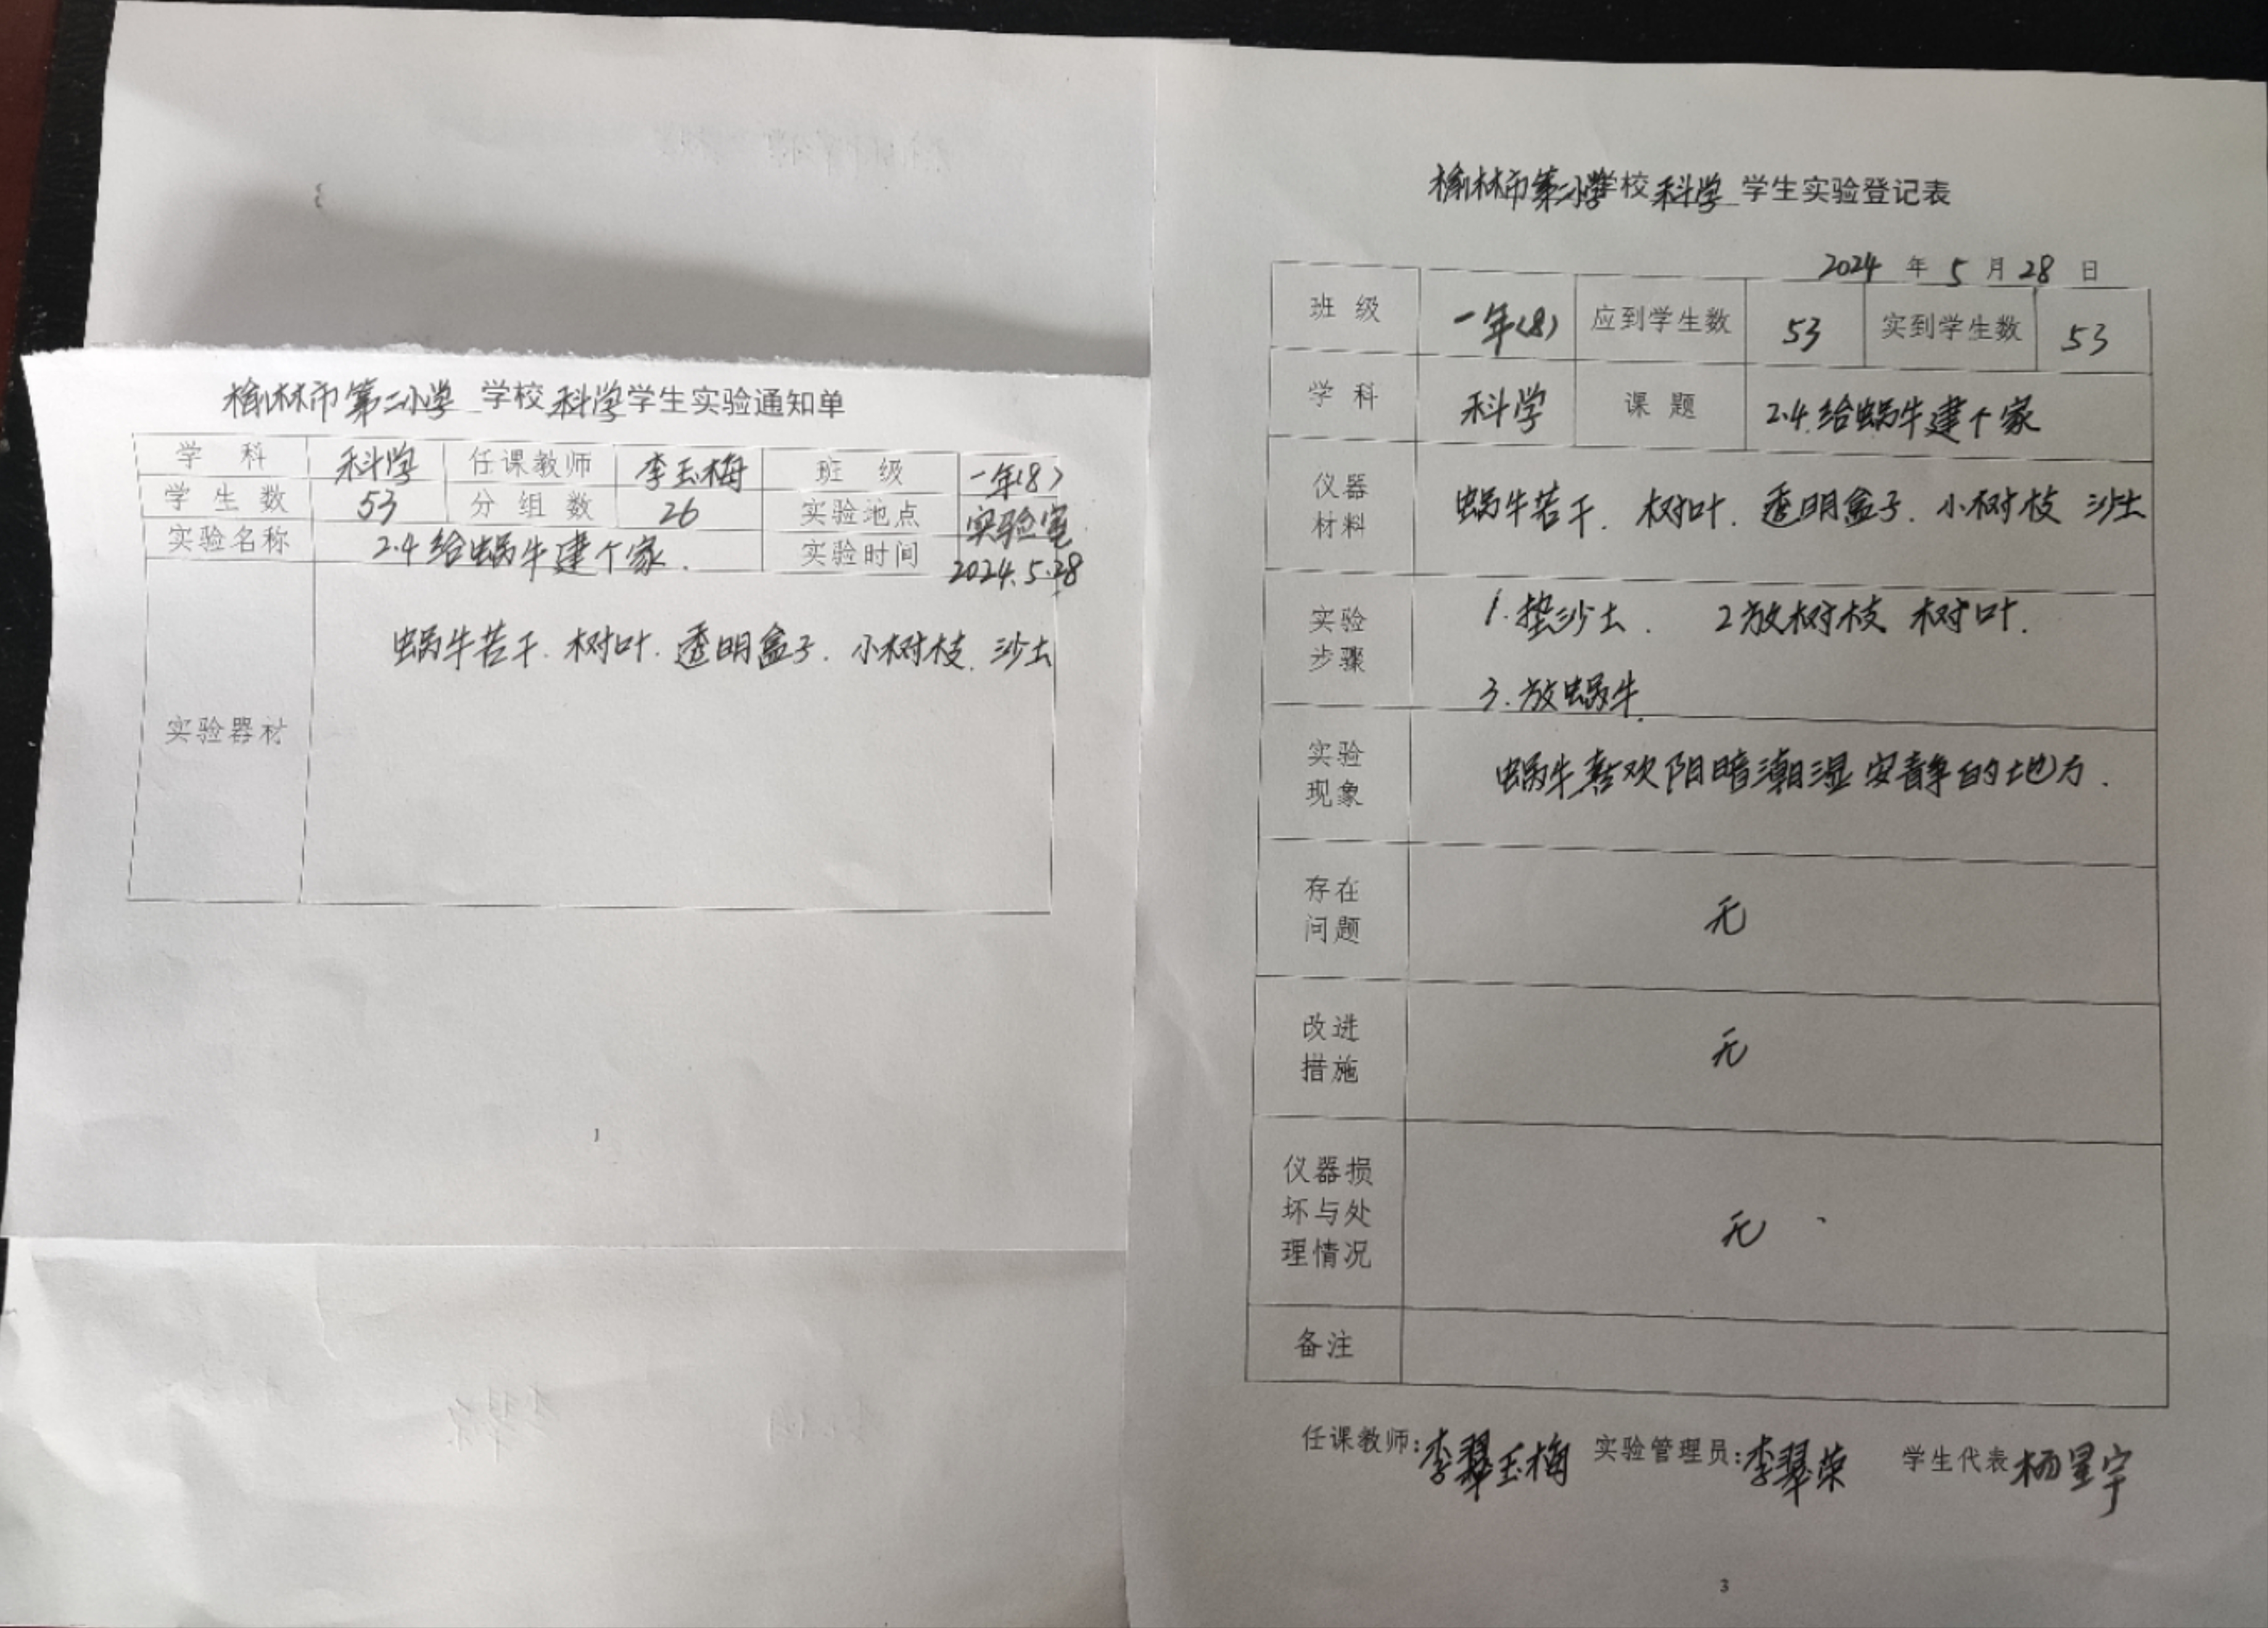 榆林市第二小学 学校 科学 学生实验通知单
学 科 科学 任课教师 李玉梅 班 级 一年(8)
学 生 数 53 分 组 数 26 实验地点 实验室
实验名称 2.4 给蜗牛建个家. 实验时间 2024.5.28
实验器材 蜗牛若干. 树叶. 透明盒子. 小树枝. 沙土
1
榆林市第二小学 学校 科学 学生实验登记表
2024 年 5 月 28 日
班 级 一年(8) 应到学生数 53 实到学生数 53
学 科 科学 课 题 2.4. 给蜗牛建个家
仪器
材料
蜗牛若干. 树叶. 透明盒子. 小树枝 沙土
实验
步骤
1. 垫沙土. 2 放树枝 树叶.
3. 放蜗牛.
实验
现象
蜗牛喜欢阴暗潮湿 安静的地方.
存在
问题
无
改进
措施
无
仪器损
坏与处
理情况
无
备注
任课教师: 李玉梅 实验管理员: 李翠荣 学生代表 杨星宇
3